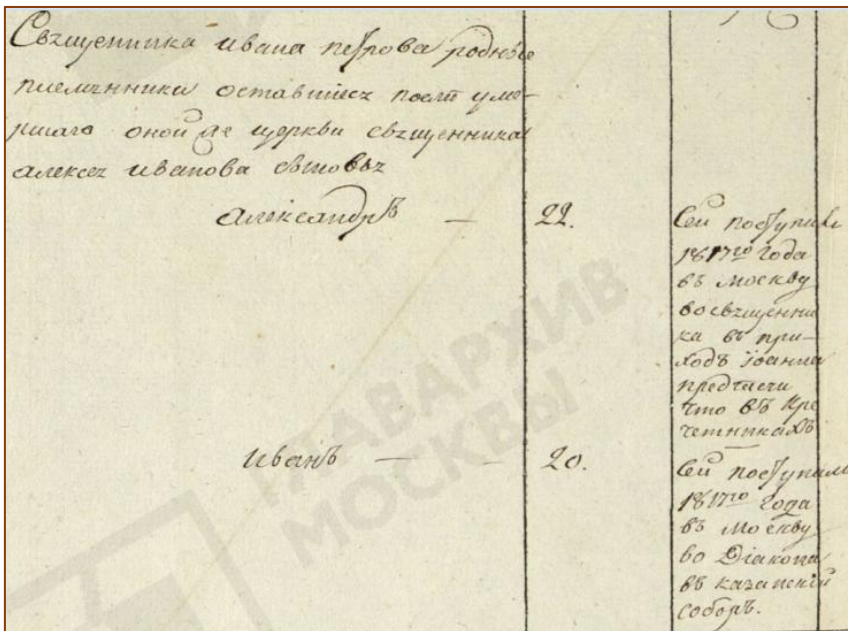 Священника ивана петрова родные
племянники оставшиеся послѣ уме-
ршаго оной же церкви священника
алексея иванова сыновья
александръ — 22.
Сей поступилъ
1817го года
въ москву
во священни
ка въ при-
ходъ іоанна
предтечи
что въ кре
четникахъ
иванъ — — 20.
Сей поступилъ
1817го года
въ москву
во діакона
въ казанский
соборъ.
ГЛАВАРХИВ
МОСКВЫ